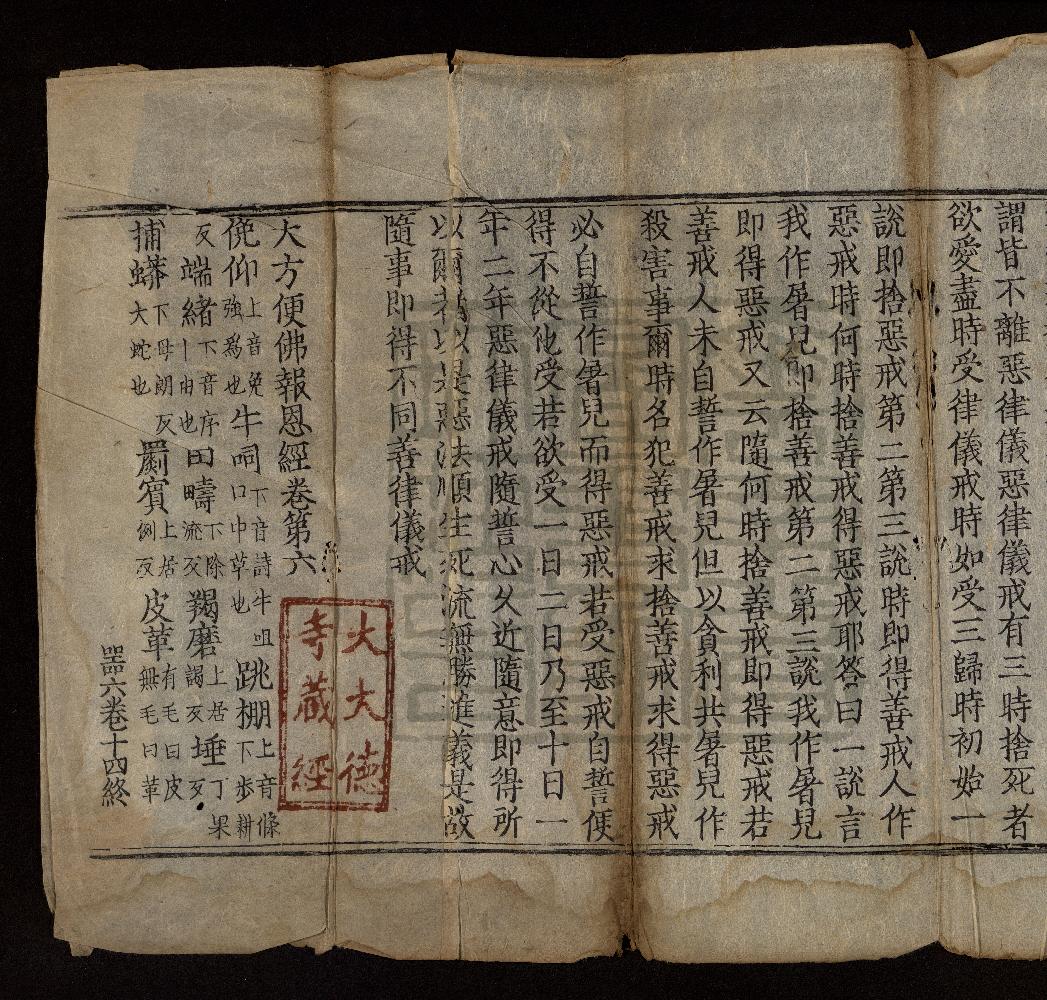 謂皆不離惡律儀惡律儀戒有三時捨死者
欲愛盡時受律儀戒時如受三歸時初始一
說即捨惡戒第二第三說時即得善戒人作
惡戒時何時捨善戒得惡戒耶答曰一說言
我作屠兒即捨善戒第二第三說我作屠兒
即得惡戒又云隨何時捨善戒即得惡戒若
善戒人未自誓作屠兒但以貪利共屠兒作
殺害事爾時名犯善戒未捨善戒未得惡戒
必自誓作屠兒而得惡戒若受惡戒自誓便
得不從他受若欲受一日二日乃至十日一
年二年惡律儀戒隨誓心久近隨意即得所
以爾者以是惡法順生死流無勝進義是故
隨事即得不同善律儀戒
大方便佛報恩經卷第六
俛仰上音免強為也牛呞下音詩牛口中草也跳棚上音條下步耕
反端緒下音序丨由也田疇下除流反羯磨上居謁反埵丁果反
捕蟒下母朗反大蛇也罽賓上居例反皮革有毛曰皮無毛曰革
器六卷十四終
大大德
寺藏經